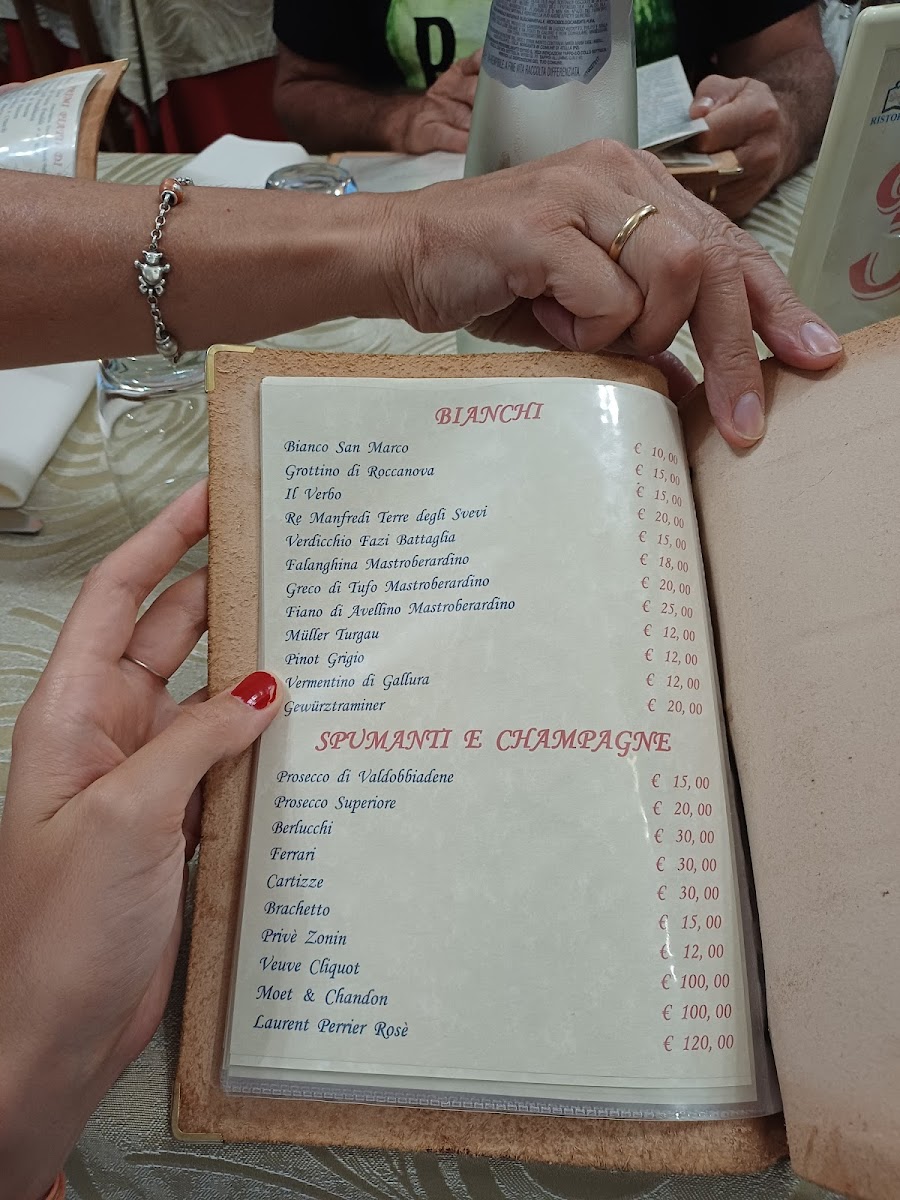 BIANCHI
Bianco San Marco € 10,00
Grottino di Roccanova € 15,00
Il Verbo € 15,00
Re Manfredi Terre degli Svevi € 20,00
Verdicchio Fazi Battaglia € 15,00
Falanghina Mastroberardino € 18,00
Greco di Tufo Mastroberardino € 20,00
Fiano di Avellino Mastroberardino € 25,00
Müller Turgau € 12,00
Pinot Grigio € 12,00
Vermentino di Gallura € 12,00
Gewürztraminer € 20,00
SPUMANTI E CHAMPAGNE
Prosecco di Valdobbiadene € 15,00
Prosecco Superiore € 20,00
Berlucchi € 30,00
Ferrari € 30,00
Cartizze € 30,00
Brachetto € 15,00
Privè Zonin € 12,00
Veuve Cliquot € 100,00
Moet & Chandon € 100,00
Laurent Perrier Rosè € 120,00
RACCOLTA DIFFERENZIATA
PIATTI DI